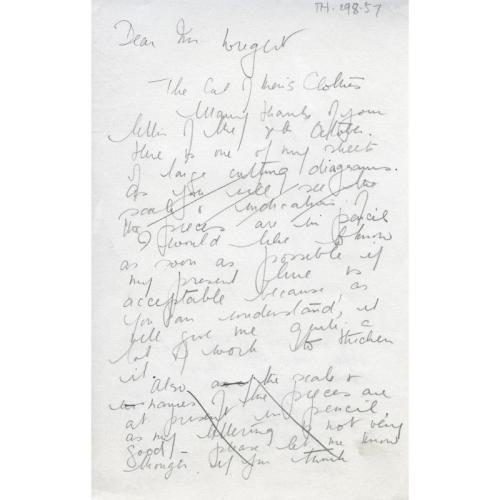 TH. 298.57
Dear Mr
The Cut of Men's Clothes
Many thanks for your
letter of the 9th October.
Here is one of my sheet
of large cutting diagrams.
As you will see the
scale & indication of
the pieces are in pencil
I would like to know
as soon as possible if
my present line is
acceptable because, as
you can understand, it
will give me quite a
lot of work to thicken
it.
Also the scale &
names of the pieces are
at present in pencil,
as my lettering is not very
good - please let me know
if you think